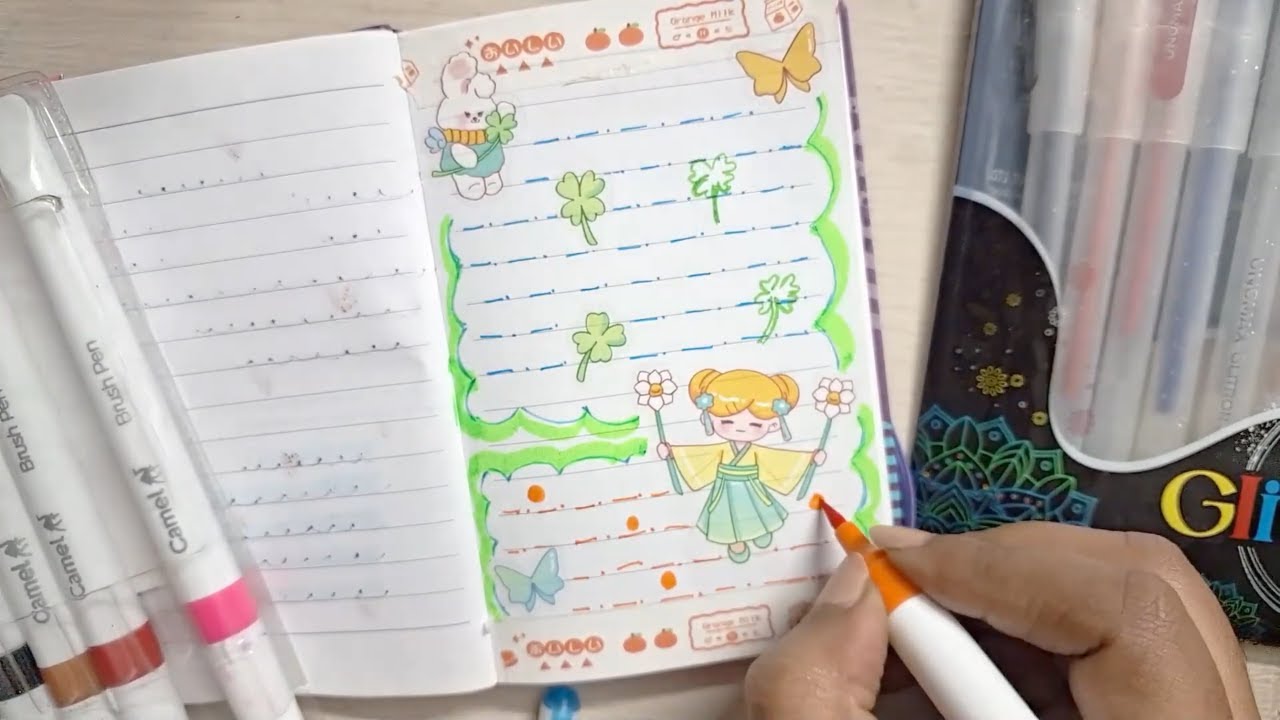 おいしい
Orange Milk
UNOMAX
Brush Pen
Camel
Brush Pen
Camel
Camel
Gli
おいしい
Orange Milk